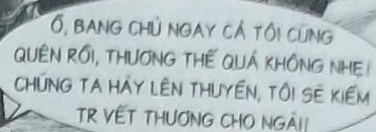 Ồ, BANG CHỦ NGAY CẢ TÔI CŨNG
QUÊN RỒI, THƯƠNG THẾ QUẢ KHÔNG NHẸ!
CHÚNG TA HÃY LÊN THUYỀN, TÔI SẼ KIỂM
TR VẾT THƯƠNG CHO NGÀI!